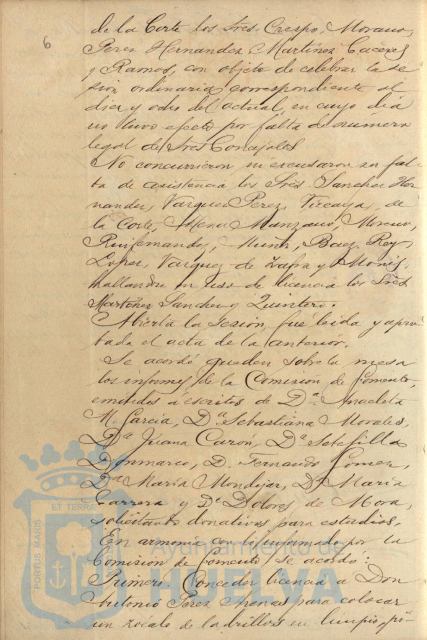 6
de la Corte los Sres. Crespo, Morano,
Perez Hernandez, Martinez Caceres
y Ramos, con objeto de celebrar la se
sion ordinaria correspondiente al
dia y ocho del actual, en cuyo dia
no tuvo efecto por falta de número
legal de Sres Concejales.
No concurrieron, ni escusaron su fal-
ta de asistencia los Sres. Sanchez Her
nandez, Vazquez Perez, Vizcaya, de
la Corte, Mena, Manzano, Moreno,
Ruifernandez, Muñiz, Baez, Rey,
Lopez, Vazquez de Zafra y Monis,
hallandose en uso de licencia los Sres
Martinez Sanchez y Quintero.
Abierta la Sesion, fué leida y apro-
bada el acta de la anterior.
Se acordó queden sobre la mesa
los informes de la Comision de Fomento,
emitidos á escritos de Dª
M. Garcia, Dª Sebastiana Morales,
Dª Juana Cazon, Dª Setefilla
Donmarco, D. Fernando Gomez,
Dª Maria Mondejar, Dª Maria
Carrera y Dª Dolores de Mora,
solicitando donativos para estudios.
En armonia con lo informado por la
Comision de Fomento, se acordó:
Primero. Conceder licencia á Don
Antonio Perez Arenas para colocar
un zocalo de ladrillos en limpio, pi-
PORTUS MARIS ET TERRE
Ayuntamiento de
HUELVA